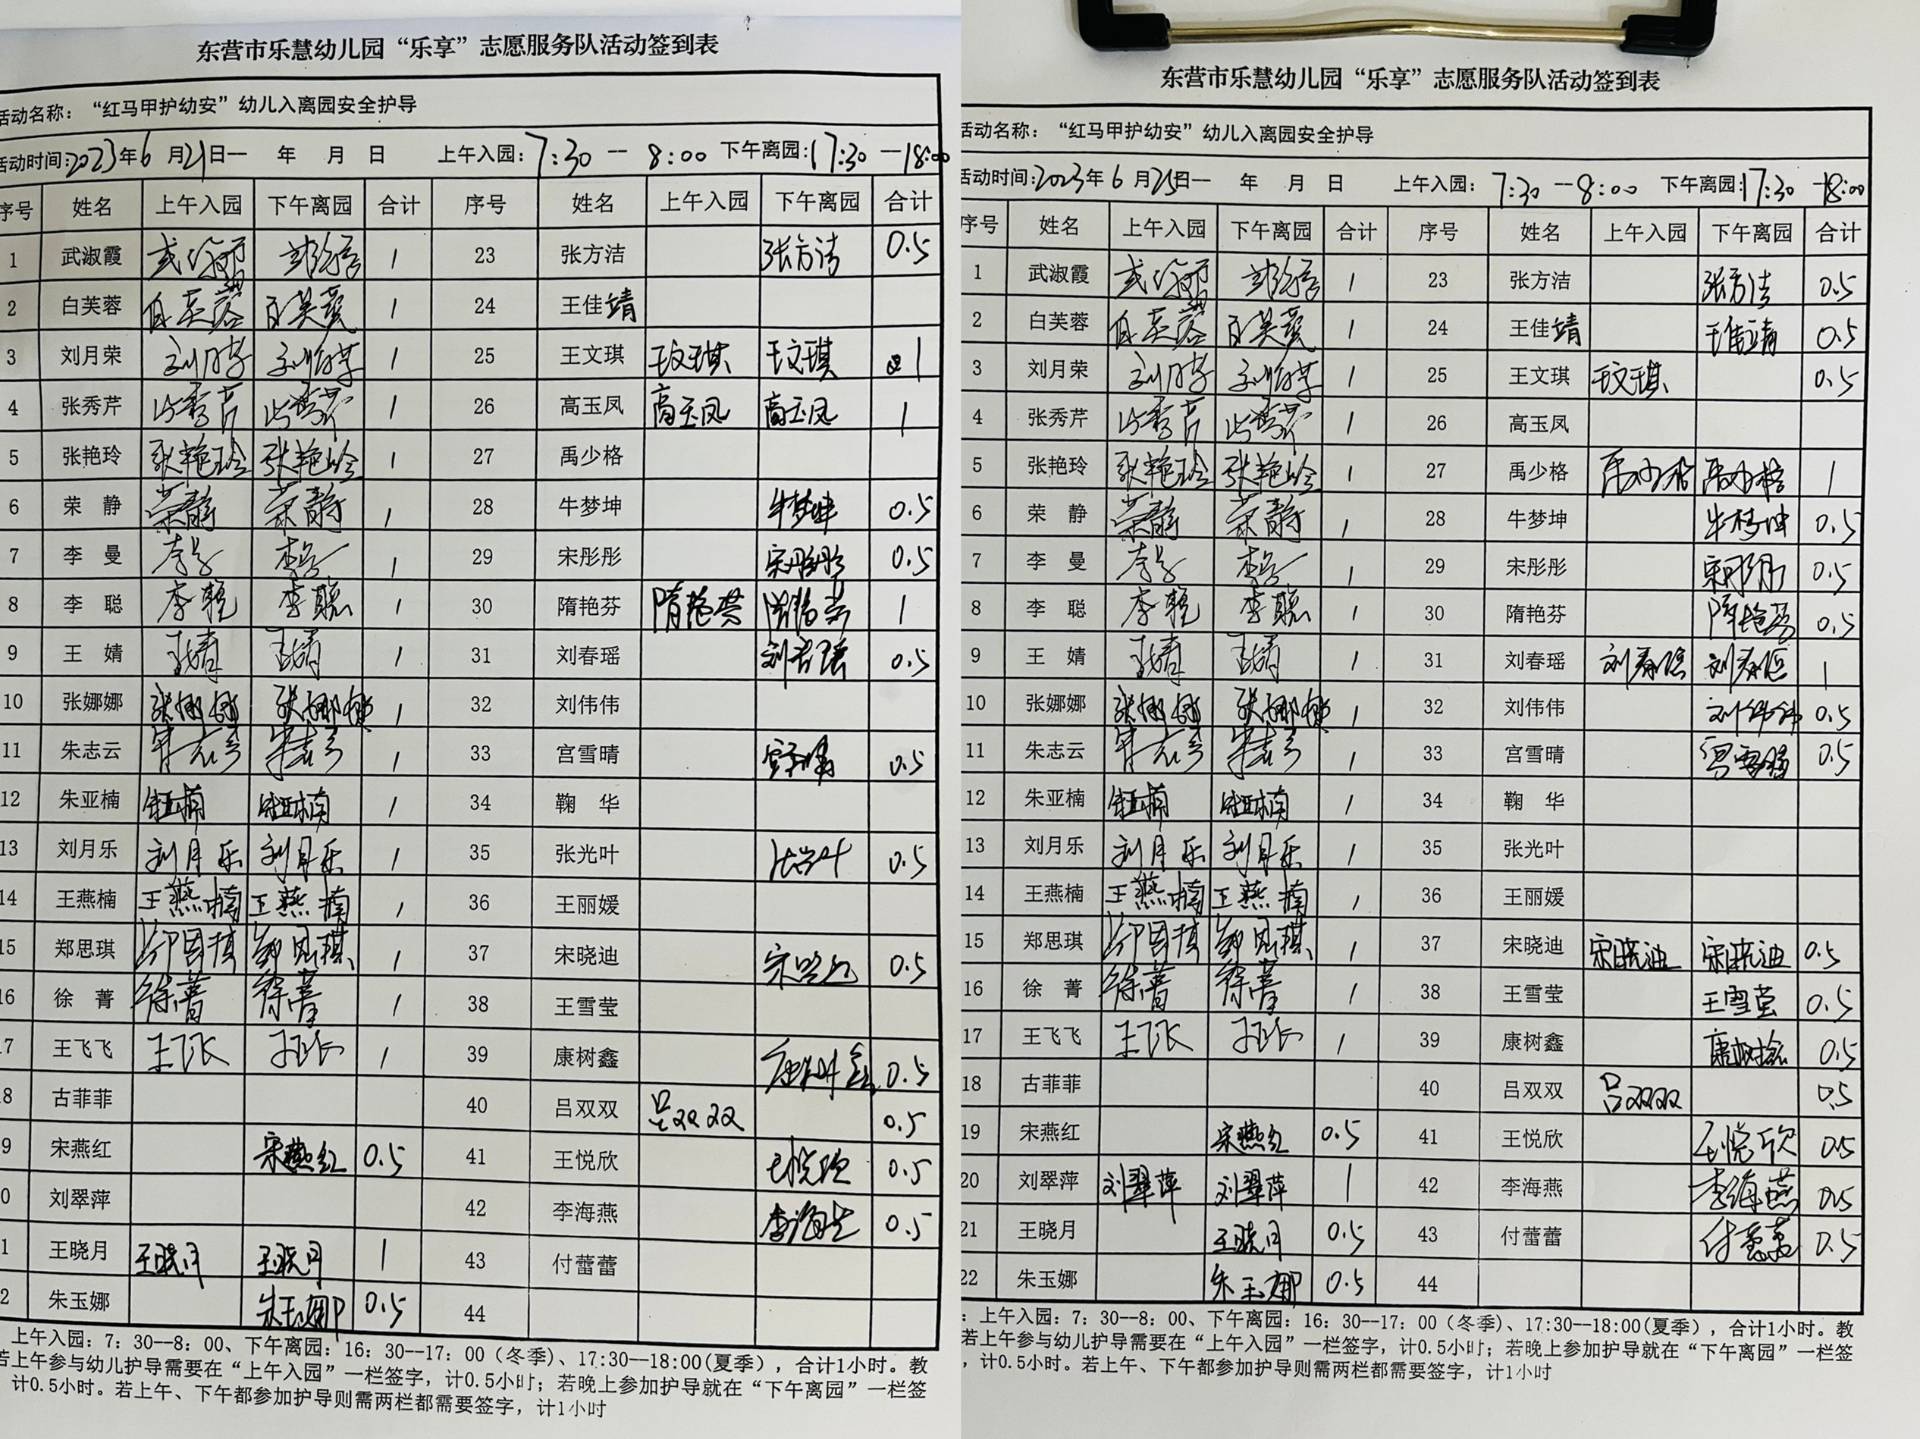 东营市乐慧幼儿园“乐享”志愿服务队活动签到表
活动名称：“红马甲护幼安”幼儿入离园安全护导
活动时间:2023年6月21日一 年 月 日 上午入园:7:30--8:00 下午离园:17:30--18:00
序号 姓名 上午入园 下午离园 合计 序号 姓名 上午入园 下午离园 合计
1 武淑霞 1 23 张方洁 张方洁 0.5
2 白芙蓉 白芙蓉 白芙蓉 1 24 王佳靖
3 刘月荣 1 25 王文琪 王文琪 王文琪 1
4 张秀芹 1 26 高玉凤 高玉凤 高玉凤 1
5 张艳玲 张艳玲 张艳玲 1 27 禹少格
6 荣 静 荣静 荣静 1 28 牛梦坤 牛梦坤 0.5
7 李 曼 李曼 李曼 1 29 宋彤彤 宋彤彤 0.5
8 李 聪 李聪 李聪 1 30 隋艳芬 隋艳芬 隋艳芬 1
9 王 婧 王婧 王婧 1 31 刘春瑶 刘春瑶 0.5
10 张娜娜 张娜娜 张娜娜 1 32 刘伟伟
11 朱志云 1 33 宫雪晴 宫雪晴 0.5
12 朱亚楠 朱亚楠 朱亚楠 1 34 鞠 华
13 刘月乐 刘月乐 刘月乐 1 35 张光叶 张光叶 0.5
14 王燕楠 王燕楠 王燕楠 1 36 王丽媛
15 郑思琪 郑思琪 郑思琪 1 37 宋晓迪 0.5
16 徐 菁 徐菁 徐菁 1 38 王雪莹
17 王飞飞 1 39 康树鑫 康树鑫 0.5
8 古菲菲 40 吕双双 吕双双 0.5
9 宋燕红 宋燕红 0.5 41 王悦欣 王悦欣 0.5
0 刘翠萍 42 李海燕 李海燕 0.5
1 王晓月 王晓月 王晓月 1 43 付蕾蕾
2 朱玉娜 朱玉娜 0.5 44
上午入园：7：30--8：00、下午离园：16：30--17：00（冬季）、17:30--18:00(夏季），合计1小时。教
若上午参与幼儿护导需要在“上午入园”一栏签字，计0.5小时；若晚上参加护导就在“下午离园”一栏签
计0.5小时。若上午、下午都参加护导则需两栏都需要签字，计1小时
东营市乐慧幼儿园“乐享”志愿服务队活动签到表
活动名称：“红马甲护幼安”幼儿入离园安全护导
活动时间:2023年6月25日一 年 月 日 上午入园：7:30--8:00 下午离园:17:30--18:00
序号 姓名 上午入园 下午离园 合计 序号 姓名 上午入园 下午离园 合计
1 武淑霞 1 23 张方洁 张方洁 0.5
2 白芙蓉 白芙蓉 白芙蓉 1 24 王佳靖 王佳靖 0.5
3 刘月荣 1 25 王文琪 王文琪 0.5
4 张秀芹 1 26 高玉凤
5 张艳玲 张艳玲 张艳玲 1 27 禹少格 禹少格 禹少格 1
6 荣 静 荣静 荣静 1 28 牛梦坤 牛梦坤 0.5
7 李 曼 李曼 李曼 1 29 宋彤彤 宋彤彤 0.5
8 李 聪 李聪 李聪 1 30 隋艳芬 隋艳芬 0.5
9 王 婧 王婧 王婧 1 31 刘春瑶 刘春瑶 刘春瑶 1
10 张娜娜 张娜娜 张娜娜 1 32 刘伟伟 刘伟伟 0.5
11 朱志云 1 33 宫雪晴 宫雪晴 0.5
12 朱亚楠 朱亚楠 朱亚楠 1 34 鞠 华
13 刘月乐 刘月乐 刘月乐 1 35 张光叶
14 王燕楠 王燕楠 王燕楠 1 36 王丽媛
15 郑思琪 郑思琪 郑思琪 1 37 宋晓迪 宋晓迪 宋晓迪 0.5
16 徐 菁 徐菁 徐菁 1 38 王雪莹 王雪莹 0.5
17 王飞飞 1 39 康树鑫 康树鑫 0.5
18 古菲菲 40 吕双双 吕双双 0.5
19 宋燕红 宋燕红 0.5 41 王悦欣 王悦欣 0.5
20 刘翠萍 刘翠萍 刘翠萍 1 42 李海燕 李海燕 0.5
21 王晓月 王晓月 0.5 43 付蕾蕾 付蕾蕾 0.5
22 朱玉娜 朱玉娜 0.5 44
：上午入园：7：30--8：00、下午离园：16：30--17：00（冬季）、17:30--18:00(夏季），合计1小时。教
若上午参与幼儿护导需要在“上午入园”一栏签字，计0.5小时；若晚上参加护导就在“下午离园”一栏签
，计0.5小时。若上午、下午都参加护导则需两栏都需要签字，计1小时